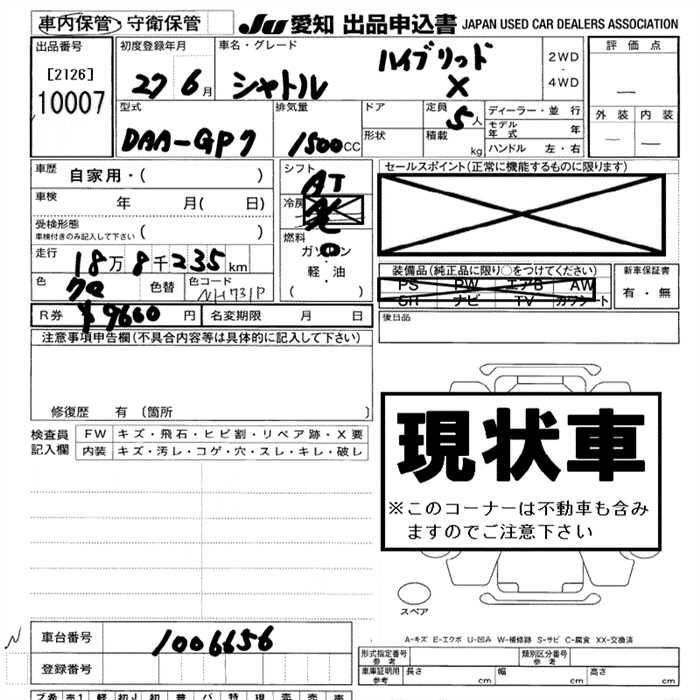 車内保管・守衛保管
JU 愛知 出品申込書 JAPAN USED CAR DEALERS ASSOCIATION
出品番号
[2126]
10007
初度登録年月
27 6月
車名・グレード
シャトル
ハイブリッド
X
2WD
・
4WD
評価点
—
外装 内装
— —
型式
DAA-GP7
排気量
1500CC
ドア
形状
定員
5人
積載
kg
ディーラー・並行
モデル年式 年
ハンドル 左・右
車歴
自家用・( )
車検
年 月( 日)
受検形態
車検付きのみ記入して下さい ( )
走行
18万8千235km
色
色替
色コード
NH731P
シフト
AT
冷房
燃料
ガソリン
軽・油
( )
セールスポイント(正常に機能するものに限ります)
装備品(純正品に限り○をつけてください)
PS PW エアB AW
SH ナビ TV カワシート
新車保証書
有・無
R券 ¥9660円
名変期限 月 日
後日品
注意事項申告欄(不具合内容等は具体的に記入して下さい)
修復歴 有〔箇所 〕
検査員
記入欄
FW キズ・飛石・ヒビ割・リペア跡・X要
内装 キズ・汚レ・コゲ・穴・スレ・キレ・破レ
現状車
※このコーナーは不動車も含み
ますのでご注意下さい
スペア
A-キズ E-エクボ U-凹み W-補修跡 S-サビ C-腐食 XX-交換済
N
車台番号
1006656
登録番号
形式指定番号
参考
類別区分番号
参考
車庫証明用
参考
長さ cm
幅 cm
高さ cm